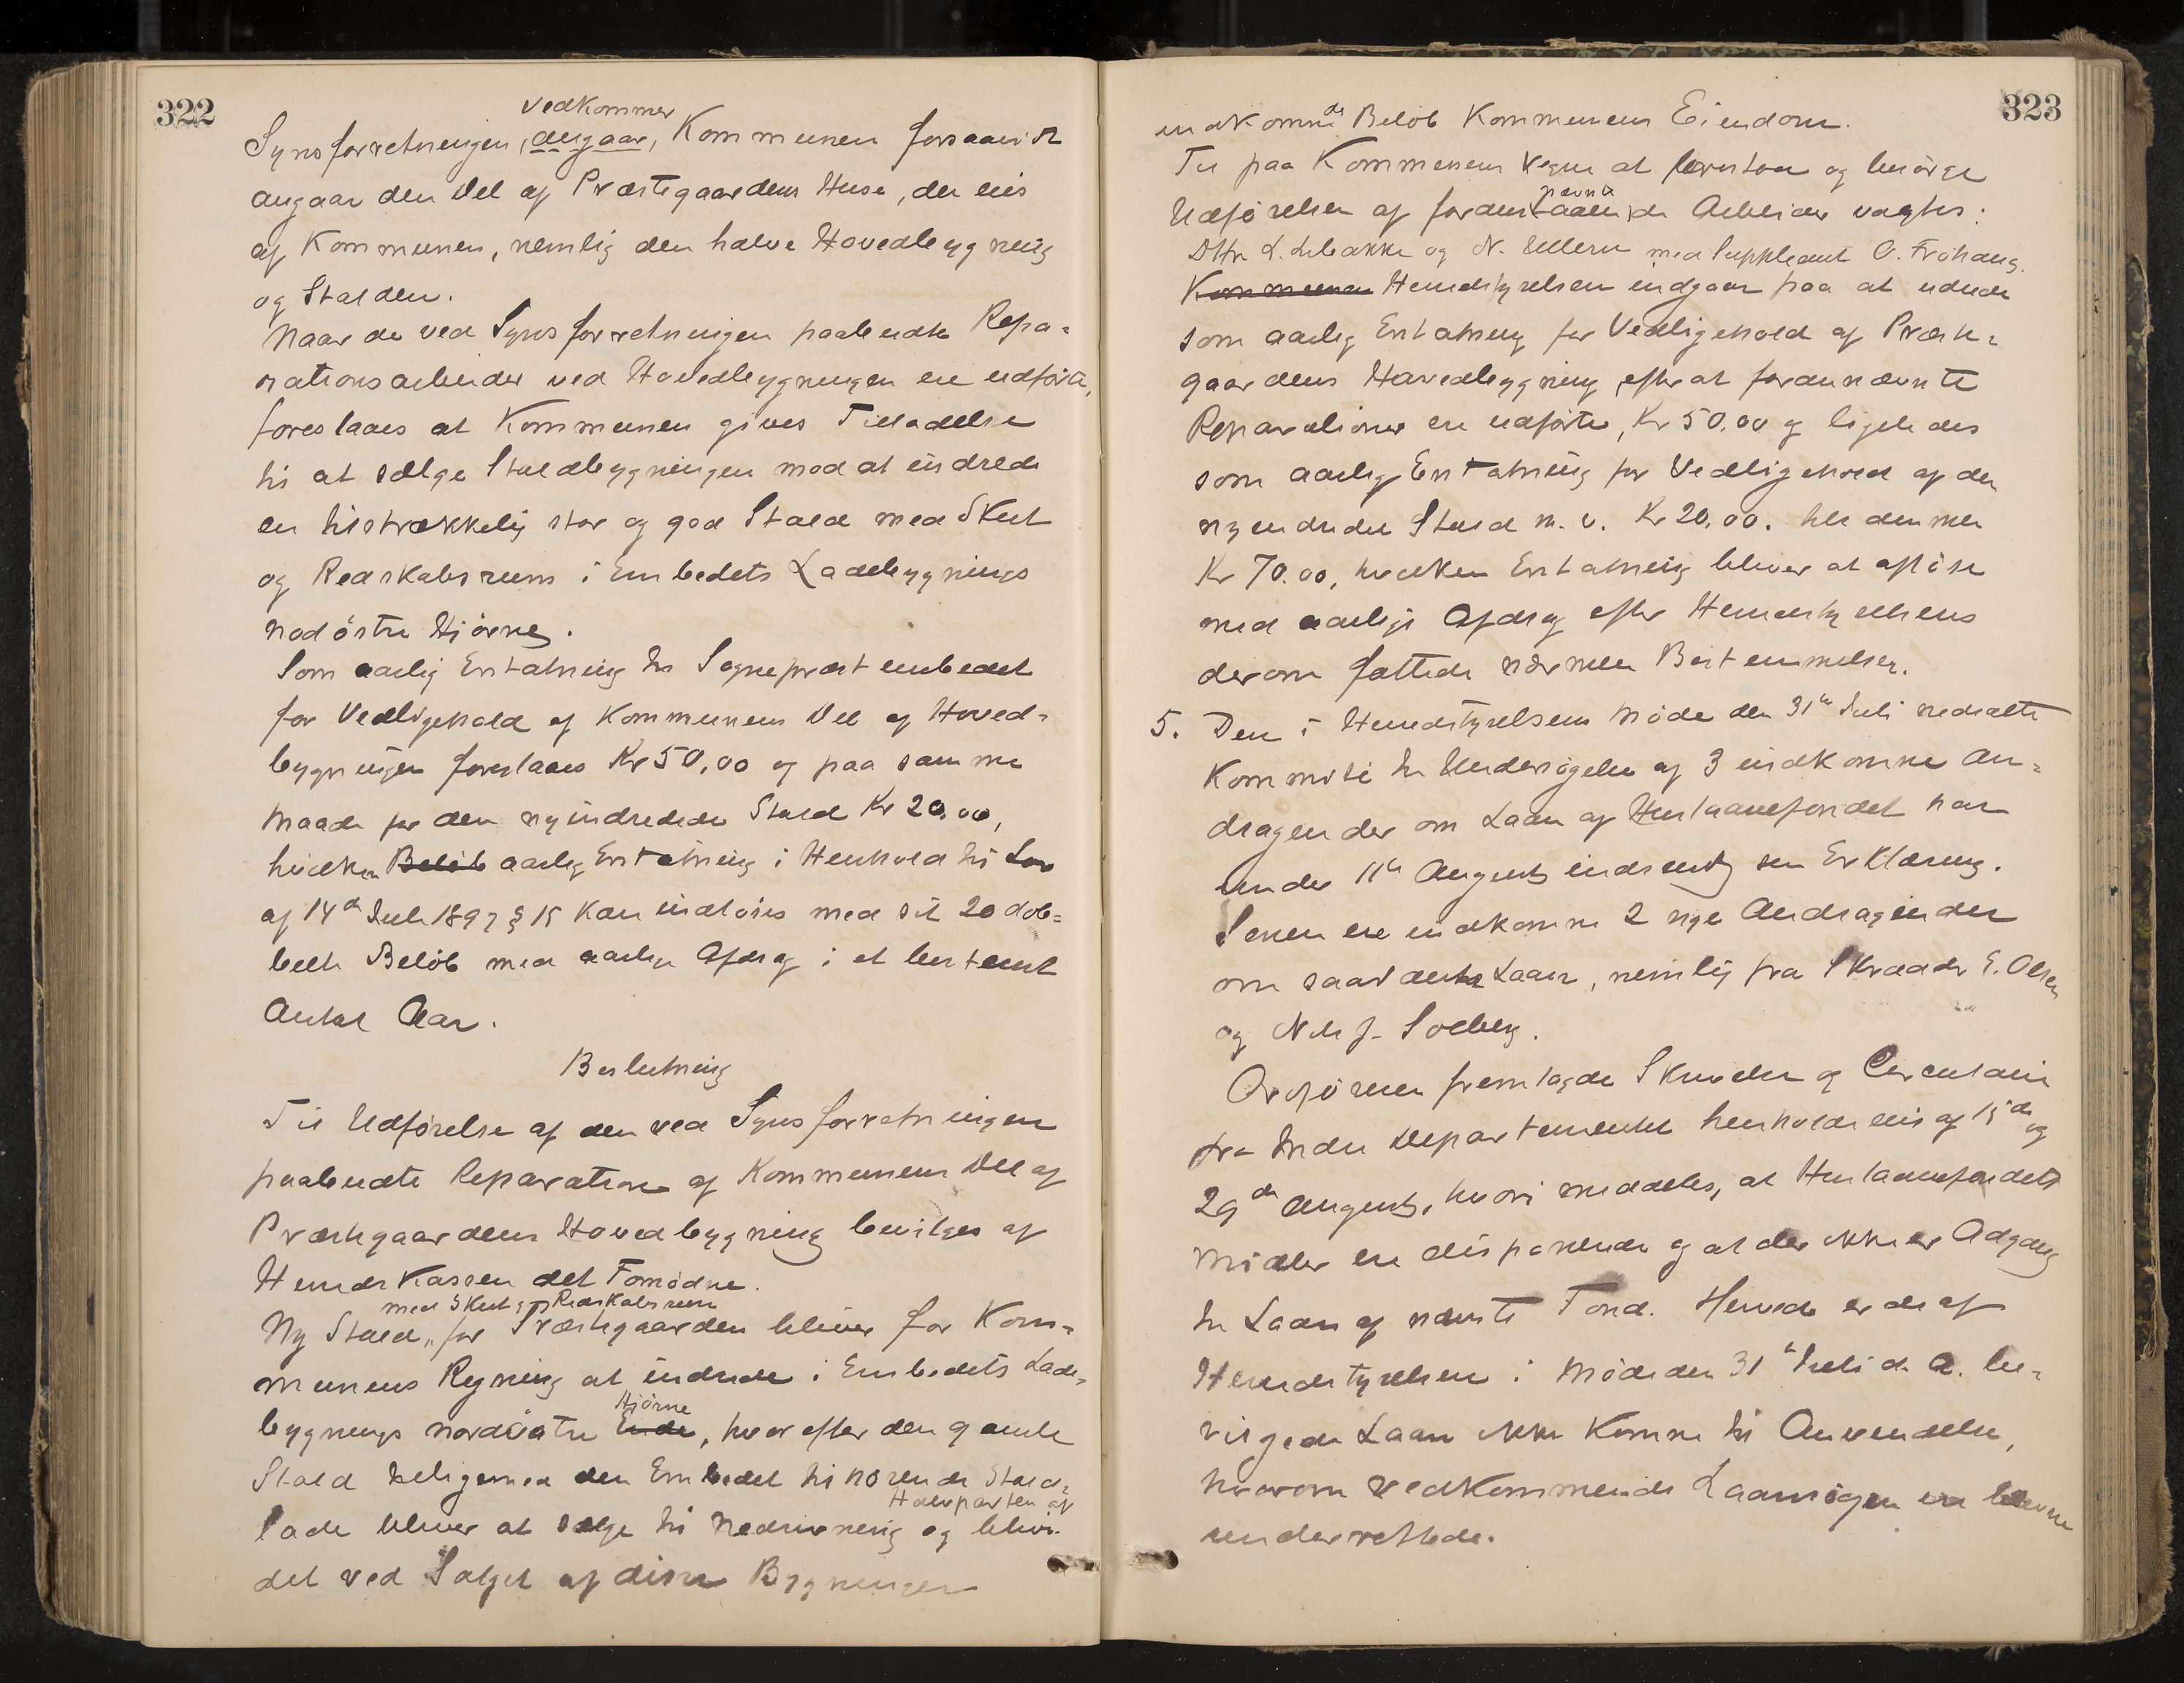 322
vedkommer
Synsforretningen, angaar, Kommunen forsaavidt
angaar den Del af Præstegaardens Huse, der eies
af Kommunen, nemlig den halve Hovedbygning
og Stalden.
Naar de ved Synsforretningen paabudte Repa-
rationsarbeider ved Hovedbygningen ere udførte,
foreslaaes at Kommunen gives Tilladelse
til at sælge Staldbygningen mod at indrede
en tilstrækkelig stor og god Stald med Skut
og Redskabsrum i Embedets Ladebygnings
nodöstre Hjörne.
Som aarlig Erstatning til Sognepræstembedet
for Vedligehold af Kommunens Del af Hoved-
bygningen foreslaaes Kr 50,00 og paa samme
Maade for den nyindredede Stald Kr 20,00,
hvilken Beløb aarlig Erstatning i Henhold til Lov
af 14de Juli 1897 § 15 kan indløses med sit 20 dob-
belte Beløb med aarlige Afdrag i et bestemt
Antal Aar.
Beslutning
Til Udførelse af den ved Synsforretningen
paabudte Reparation af Kommunens Del af
Præstegaardens Hovedbygning bevilges af
Herredskassen det Fornødne.
med Skut og Redskabsrum
Ny Stald, for Præstegaarden bliver for Kom-
munens Regning at indrede i Embedets Lade-
Hjörne
bygnings nordöstre Ende, hvorefter den gamle
Stald tilligemed den Embedet tilhørende Stald-
Halvparten af
lade bliver at sælge til Nedrivning og bliver
det ved Salget af disse Bygninger
323
indkomne de Beløb Kommunens Eiendom.
Til paa Kommunens Vegne at forestaa og besørge
nævnte
Udførelsen af foranstaaende Arbeider vagtes:
DHr L. Lebakke og N. Ullern med Suppleant O. Fröhaug.
Kommunen Herredstyrelsen indgaar paa at udrede
som aarlig Erstatning for Vedligehold af Præste-
gaardens Hovedbygning efterat forannævnte
Reparationer ere udførte, Kr 50.00 og ligeledes
som aarlig Erstatning for Vedligehold af den
nyindredet Stald m. v. Kr 20,00. tilsammen
Kr 70.00, hvilken Erstatning bliver at afløse
med aarlige Afdrag efter Herredstyrelsens
derom fattede nærmere Bestemmelser.
5. Den i Herredstyrelsens Møde den 31te Juli nedsatte
Kommité til Undersøgelse af 3 indkomne An-
dragender om Laan af Huslaanefondet har
under 11te August indsendt sin Erklæring.
Senere ere indkomne 2 nye Andragender
om saadanne Laan, nemlig fra Skrædder E. Olsen
og Nils J. Solberg.
Ordføreren fremlagde Skrivelse og Circulaire
fra Indre Departementet henholdsvis af 15de og
29de August, hvori meddeles, at Huslaanefondets
Midler ere disponerede og at der ikke er Adgang
til Laan af nævnte Fond. Herved er de af
Herredstyrelsen i Møde den 31te Juli d. A. be-
vilgede Laan ikke Komne til Anvendelse,
hvorom vedkommende Laansøgere ere blevne
underrettede.